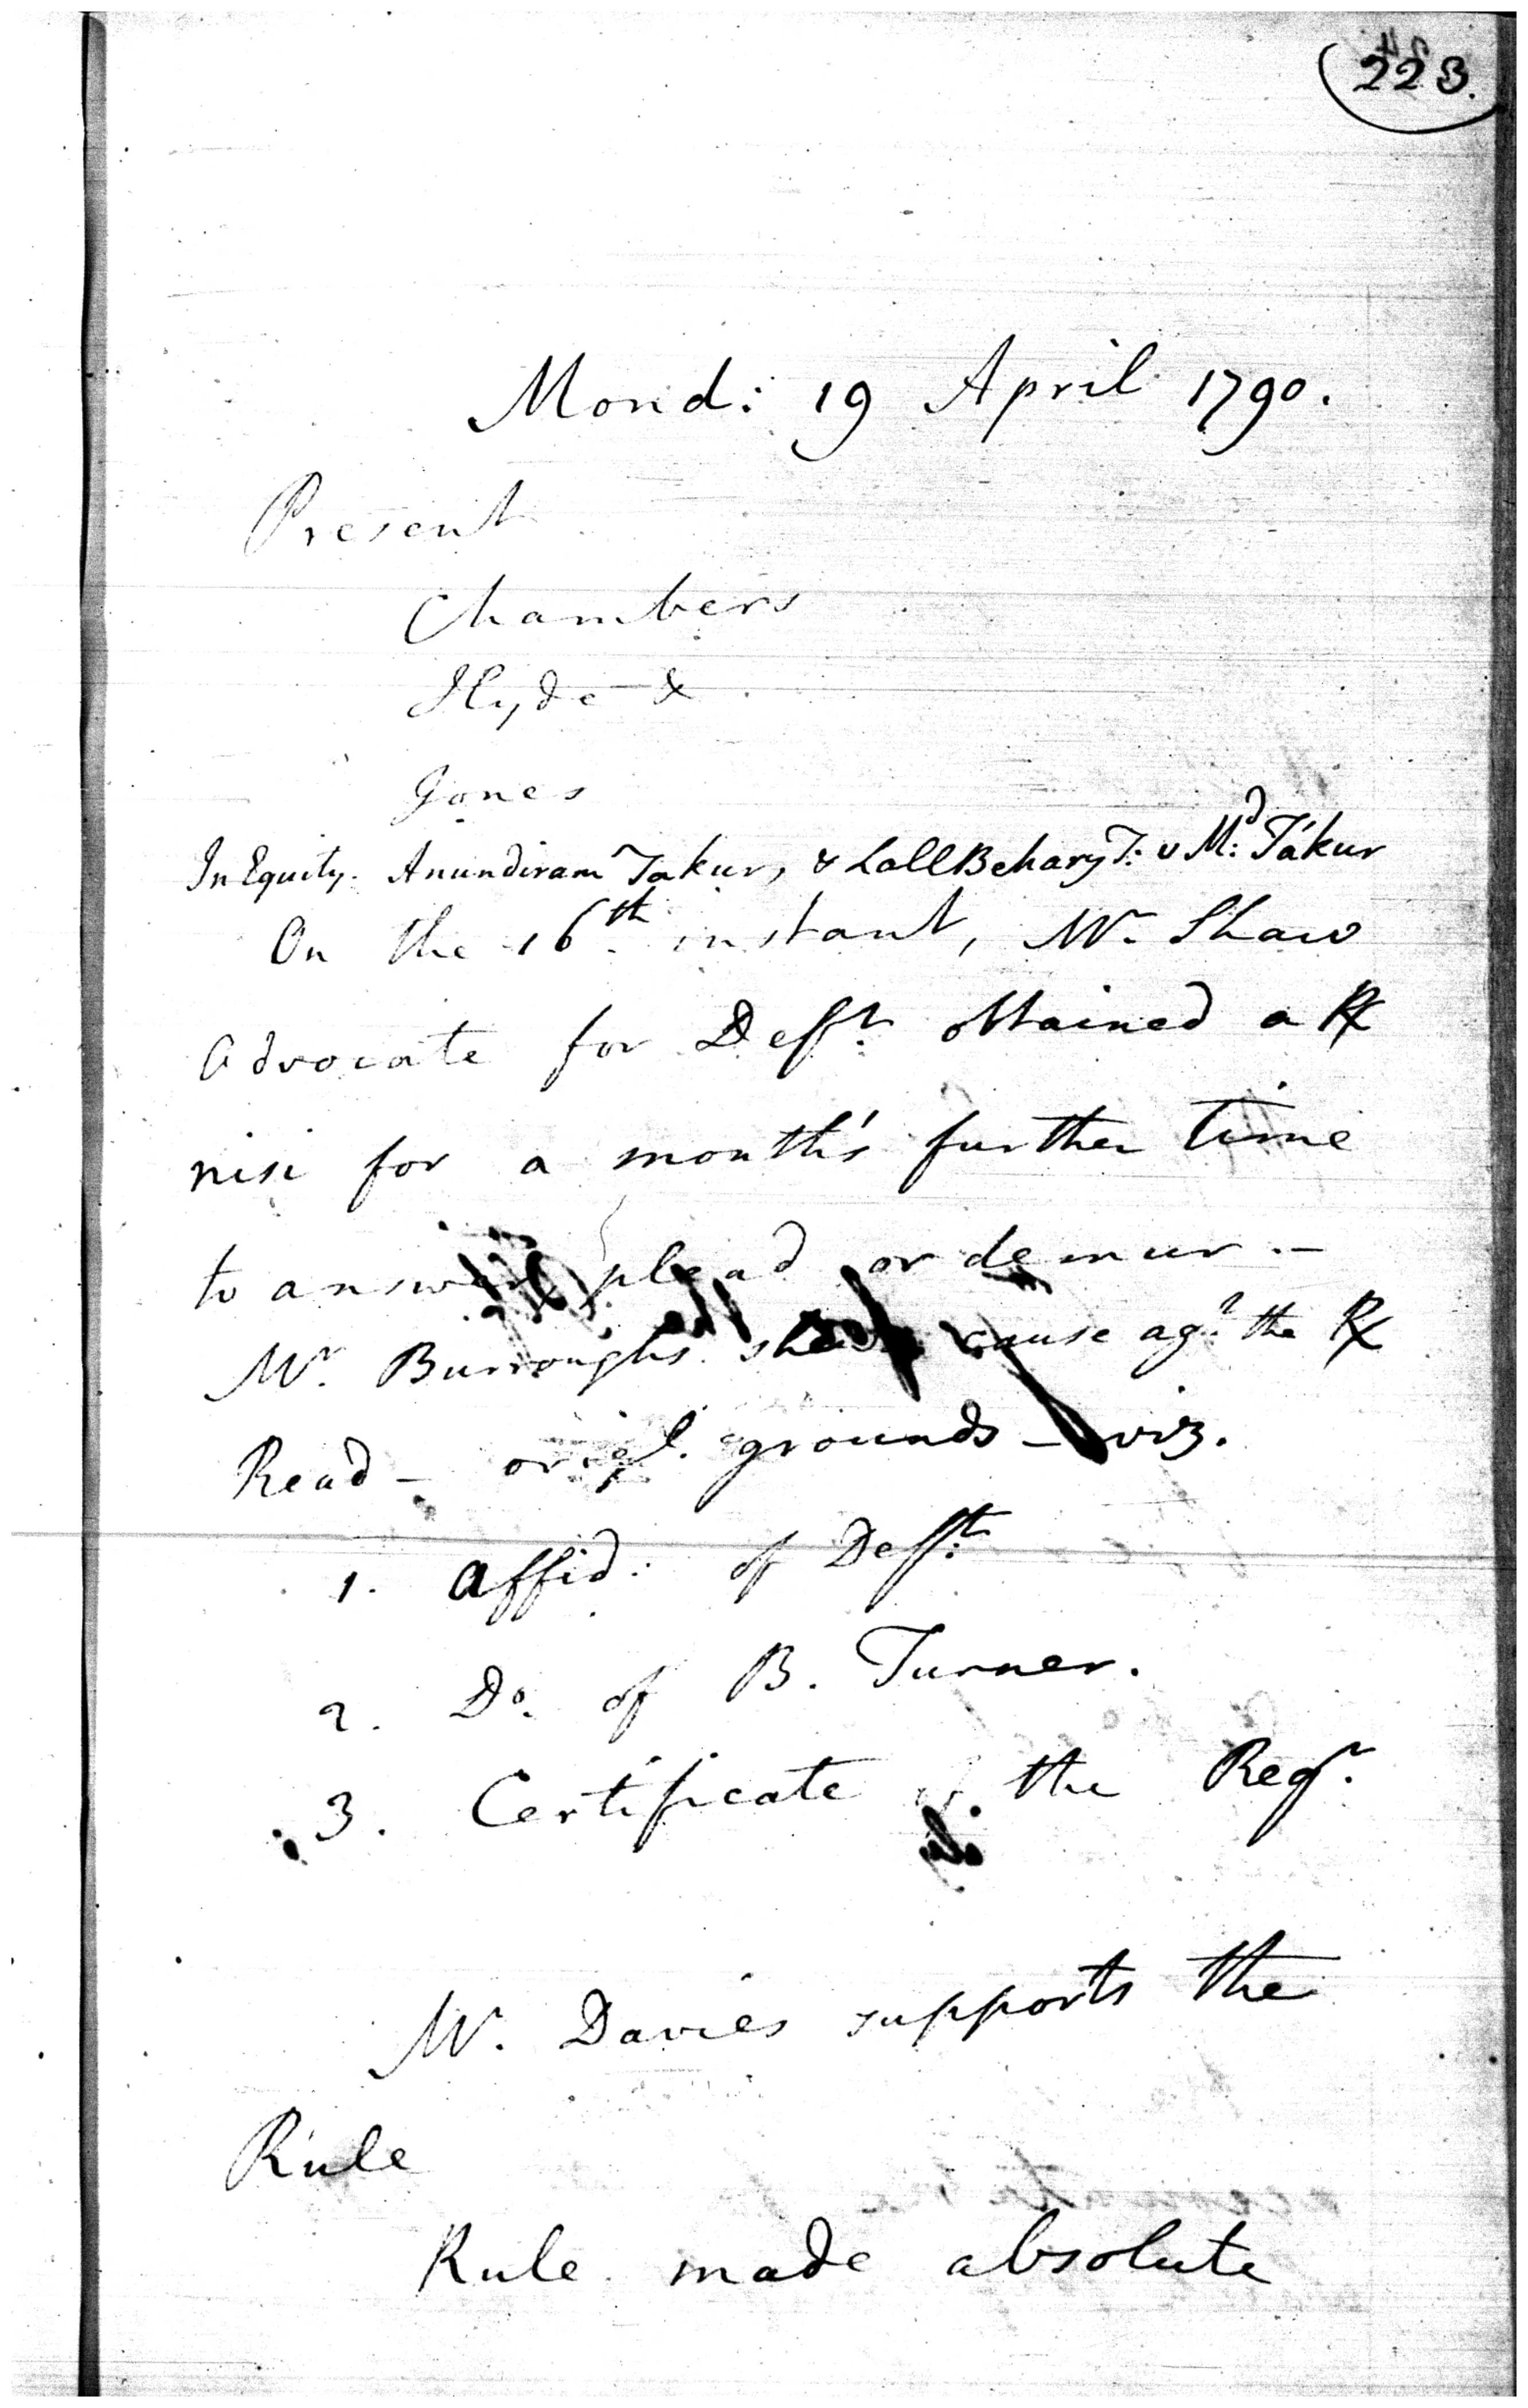 223.
Mond: 19 April 1790.
Present
Chambers
Hyde &
Jones
In Equity. Anundiram Takur, & Lall Behary T: v M:d Tákur
On the 16th instant, Mr. Shaw
Advocate for Defft. obtained a R
nisi for a month's further time
to answer plead or demur. —
Mr. Burroughs shews cause agt. the R
Read — origl. grounds — viz.
1. Affid: of Defft.
2. Do. of B. Turner.
3. Certificate of the Regr.
Mr. Davies supports the
Rule
Rule made absolute